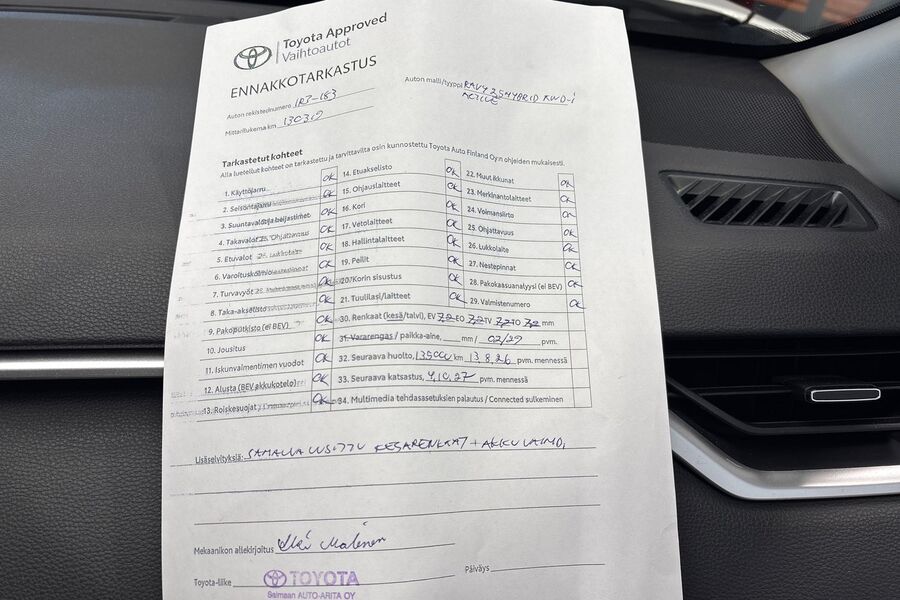 Toyota Approved
Vaihtoautot
ENNAKKOTARKASTUS
Auton rekisterinumero IRT-183
Auton malli/tyyppi RAV4 2.5 HYBRID AWD-i
ACTIVE
Mittarilukema km 130319
Tarkastetut kohteet
Alla luetellut kohteet on tarkastettu ja tarvittavilta osin kunnostettu Toyota Auto Finland Oy:n ohjeiden mukaisesti.
1. Käyttöjarru OK
2. Seisontajarru OK
3. Suuntavalot ja heijastimet OK
4. Takavalot OK
5. Etuvalot OK
6. Varoituskolmio OK
7. Turvavyöt OK
8. Taka-akselisto OK
9. Pakoputkisto (ei BEV) OK
10. Jousitus OK
11. Iskunvaimentimen vuodot OK
12. Alusta (BEV akkukotelo) OK
13. Roiskesuojat OK
14. Etuakselisto OK
15. Ohjauslaitteet OK
16. Kori OK
17. Vetolaitteet OK
18. Hallintalaitteet OK
19. Peilit OK
20. Korin sisustus OK
21. Tuulilasi/laitteet OK
22. Muut ikkunat OK
23. Merkinantolaitteet OK
24. Voimansiirto OK
25. Ohjattavuus OK
26. Lukkolaite OK
27. Nestepinnat OK
28. Pakokaasuanalyysi (ei BEV) OK
29. Valmistenumero OK
30. Renkaat (kesä/talvi), EV 7,2 EO 7,2 TV 7,2 TO 7,2 mm
31. Vararengas / paikka-aine, mm / 02/29 pvm.
32. Seuraava huolto, 135000 km 13.8.26 pvm. mennessä
33. Seuraava katsastus, 4.10.27 pvm. mennessä
34. Multimedia tehdasasetuksien palautus / Connected sulkeminen
Lisäselvityksiä: SAMALLA UUSITTU KESÄRENKAAT + AKKU VAIHD.
Mekaanikon allekirjoitus
Toyota-liike TOYOTA
Saimaan AUTO-ARITA OY
Päiväys